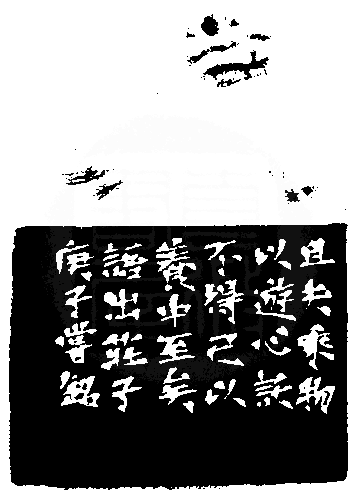 且夫乘物
以遊心託
不得已以
養中至矣
語出莊子
庚子嘗銘